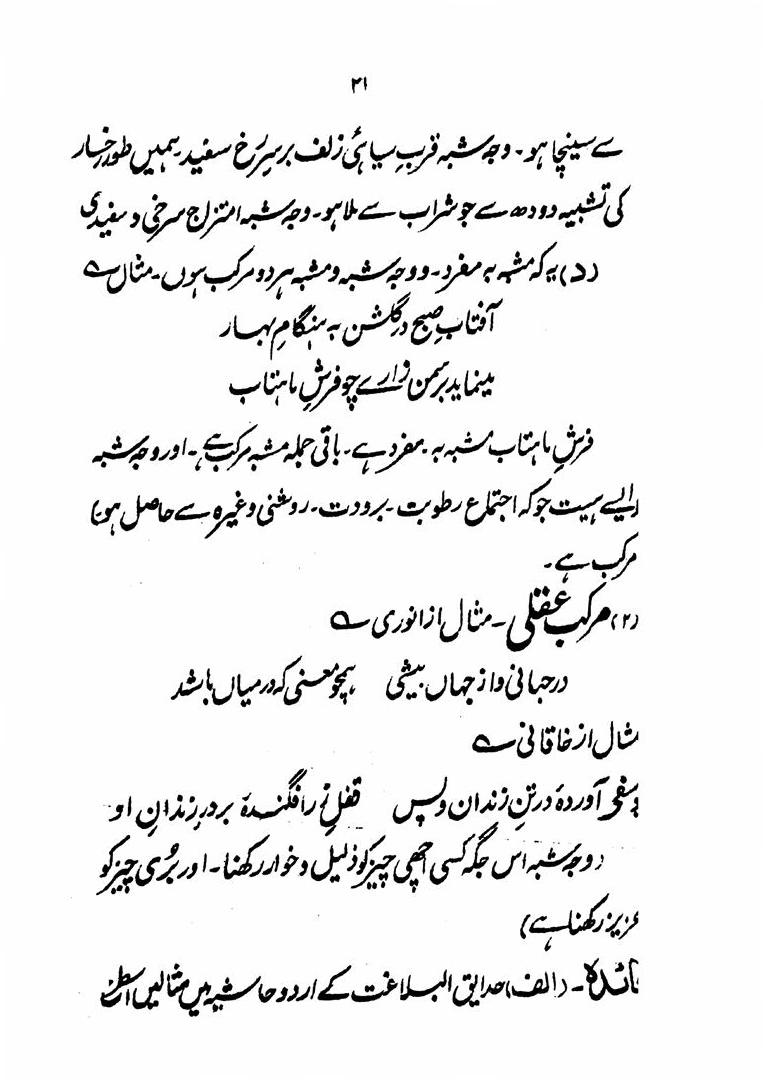 ۲۱
سے سینچا ہو۔ وجہ شبہ قرب سیاہئ زلف بر سرِ رُخ سفید۔ ہمیں طور رخسار
کی تشبیہ دودھ سے جو شراب سے ملا ہو۔ وجہ شبہ امتزاج سرخی و سفیدی
(د) یہ کہ مشبہ بہ مفرد۔ و وجہ شبہ و مشبہ ہر دو مرکب ہوں۔ مثال ے
آفتابِ صبح در گلشن بہ ہنگامِ بہار
مینماید بر سمن زارے چو فرشِ ماہتاب
فرشِ ماہتاب مشبہ بہ۔ مفرد ہے۔ باقی جملہ مشبہ مرکب ہے۔ اور وجہ شبہ
ایسے ہیت جو کہ اجتماع رطوبت۔ برودت۔ روشنی وغیرہ سے حاصل ہونا
مرکب ہے۔
(۲) مرکب عقلی۔ مثال از انوری ے
در جہانی و از جہاں بیشی ہمچو معنی کہ در میاں باشد
مثال از خاقانی ے
آوردۂ در تنِ زندان وپس قفلِ زر افگندۂ بر درِ زندانِ او
(وجہ شبہ اس جگہ کسی اچھی چیز کو ذلیل و خوار رکھنا۔ اور بُری چیز کو
عزیز رکھنا ہے)
فائدہ۔ (الف) حدایق البلاغت کے اردو حاشیہ میں مثالیں